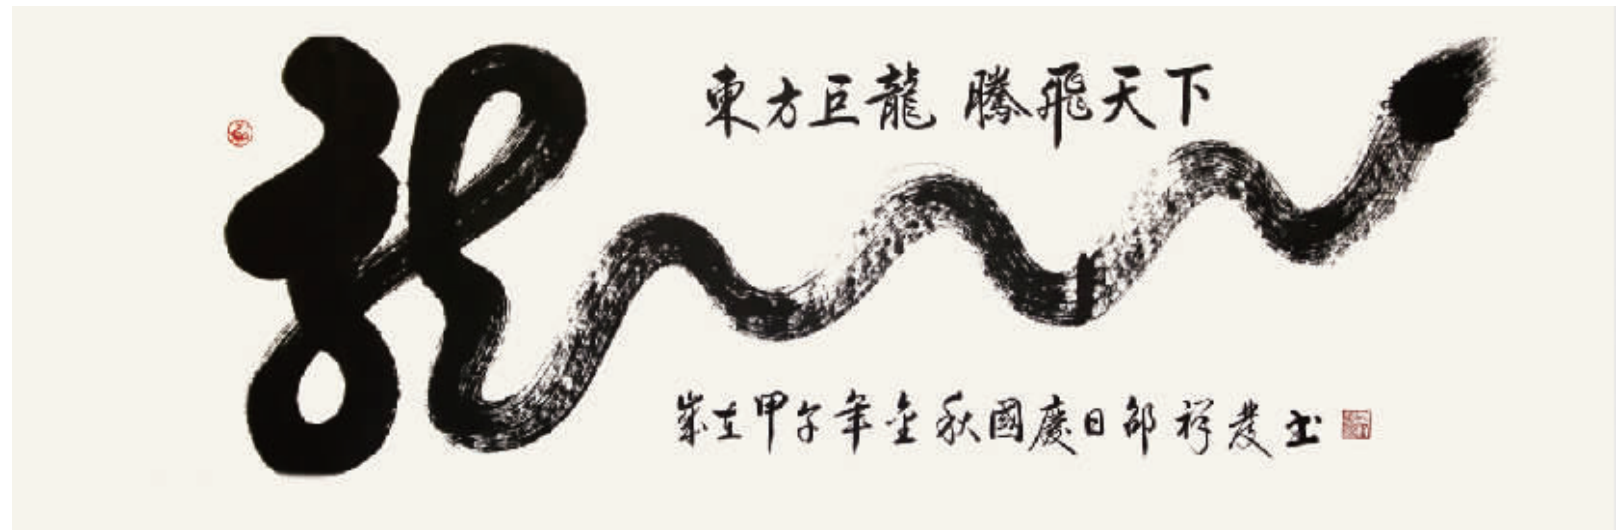 龍
東方巨龍 騰飛天下
歲在甲午年金秋國慶日邵祥書